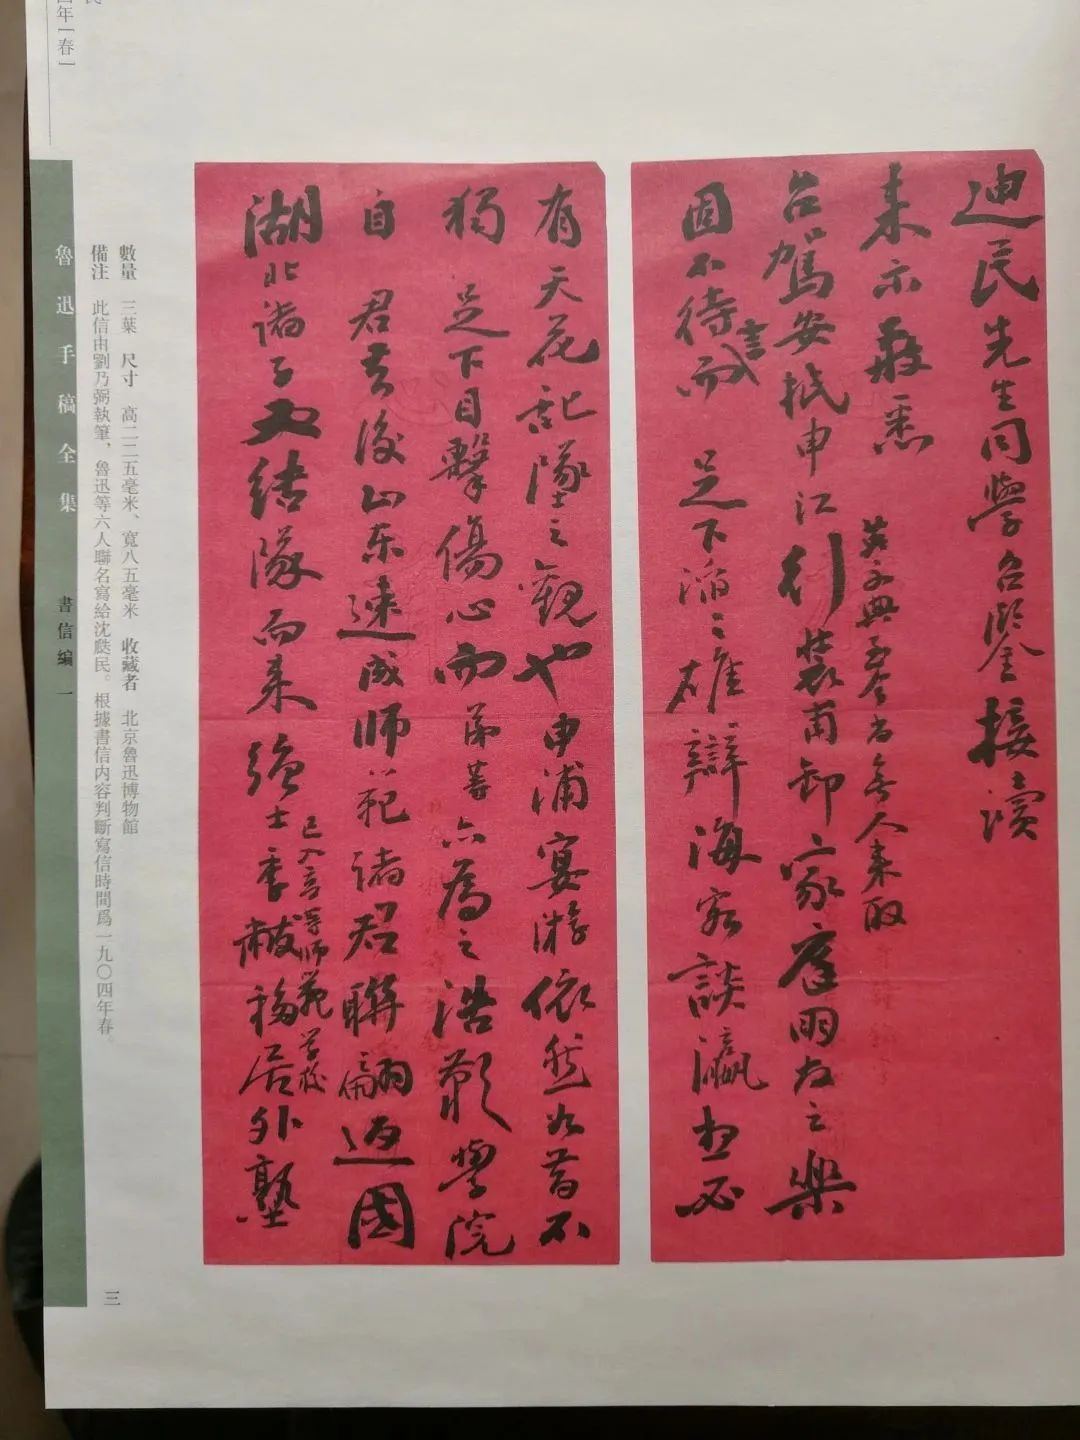 迪民先生同學台鑒接讀
來示敬悉
台駕安抵申江行裝甫卸家庭朋友之樂
固不待言而
足下滔滔雄辯海客談瀛想必
有天花亂墜之觀也申浦宴游依然如昔不
獨足下目擊傷心而弟等亦為之浩歎學院
自君去後山東速成師範諸君聯翩返國
湖北諸子又結隊而來強士季黻
已入高等師範學校
移居外塾
數量 三葉 尺寸 高二二五毫米、寬八五毫米 收藏者 北京魯迅博物館
備注 此信由劉乃弼執筆，魯迅等六人聯名寫給沈瓞民。根據書信内容判斷寫信時間爲一九〇四年春。
魯迅手稿全集 書信編 一
三
四年［春］
民